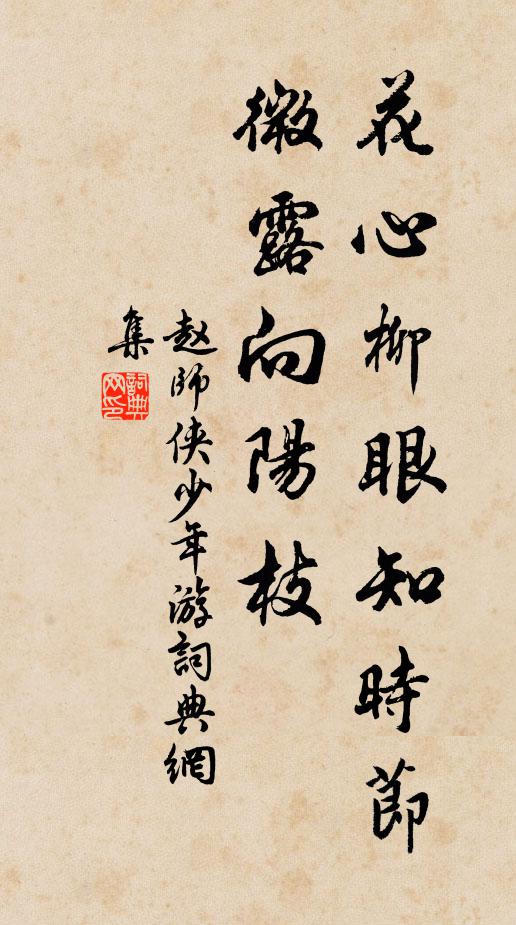 花心柳眼知時節
微露向陽枝
赵師侠少年游詞典網
集
詞典
网印